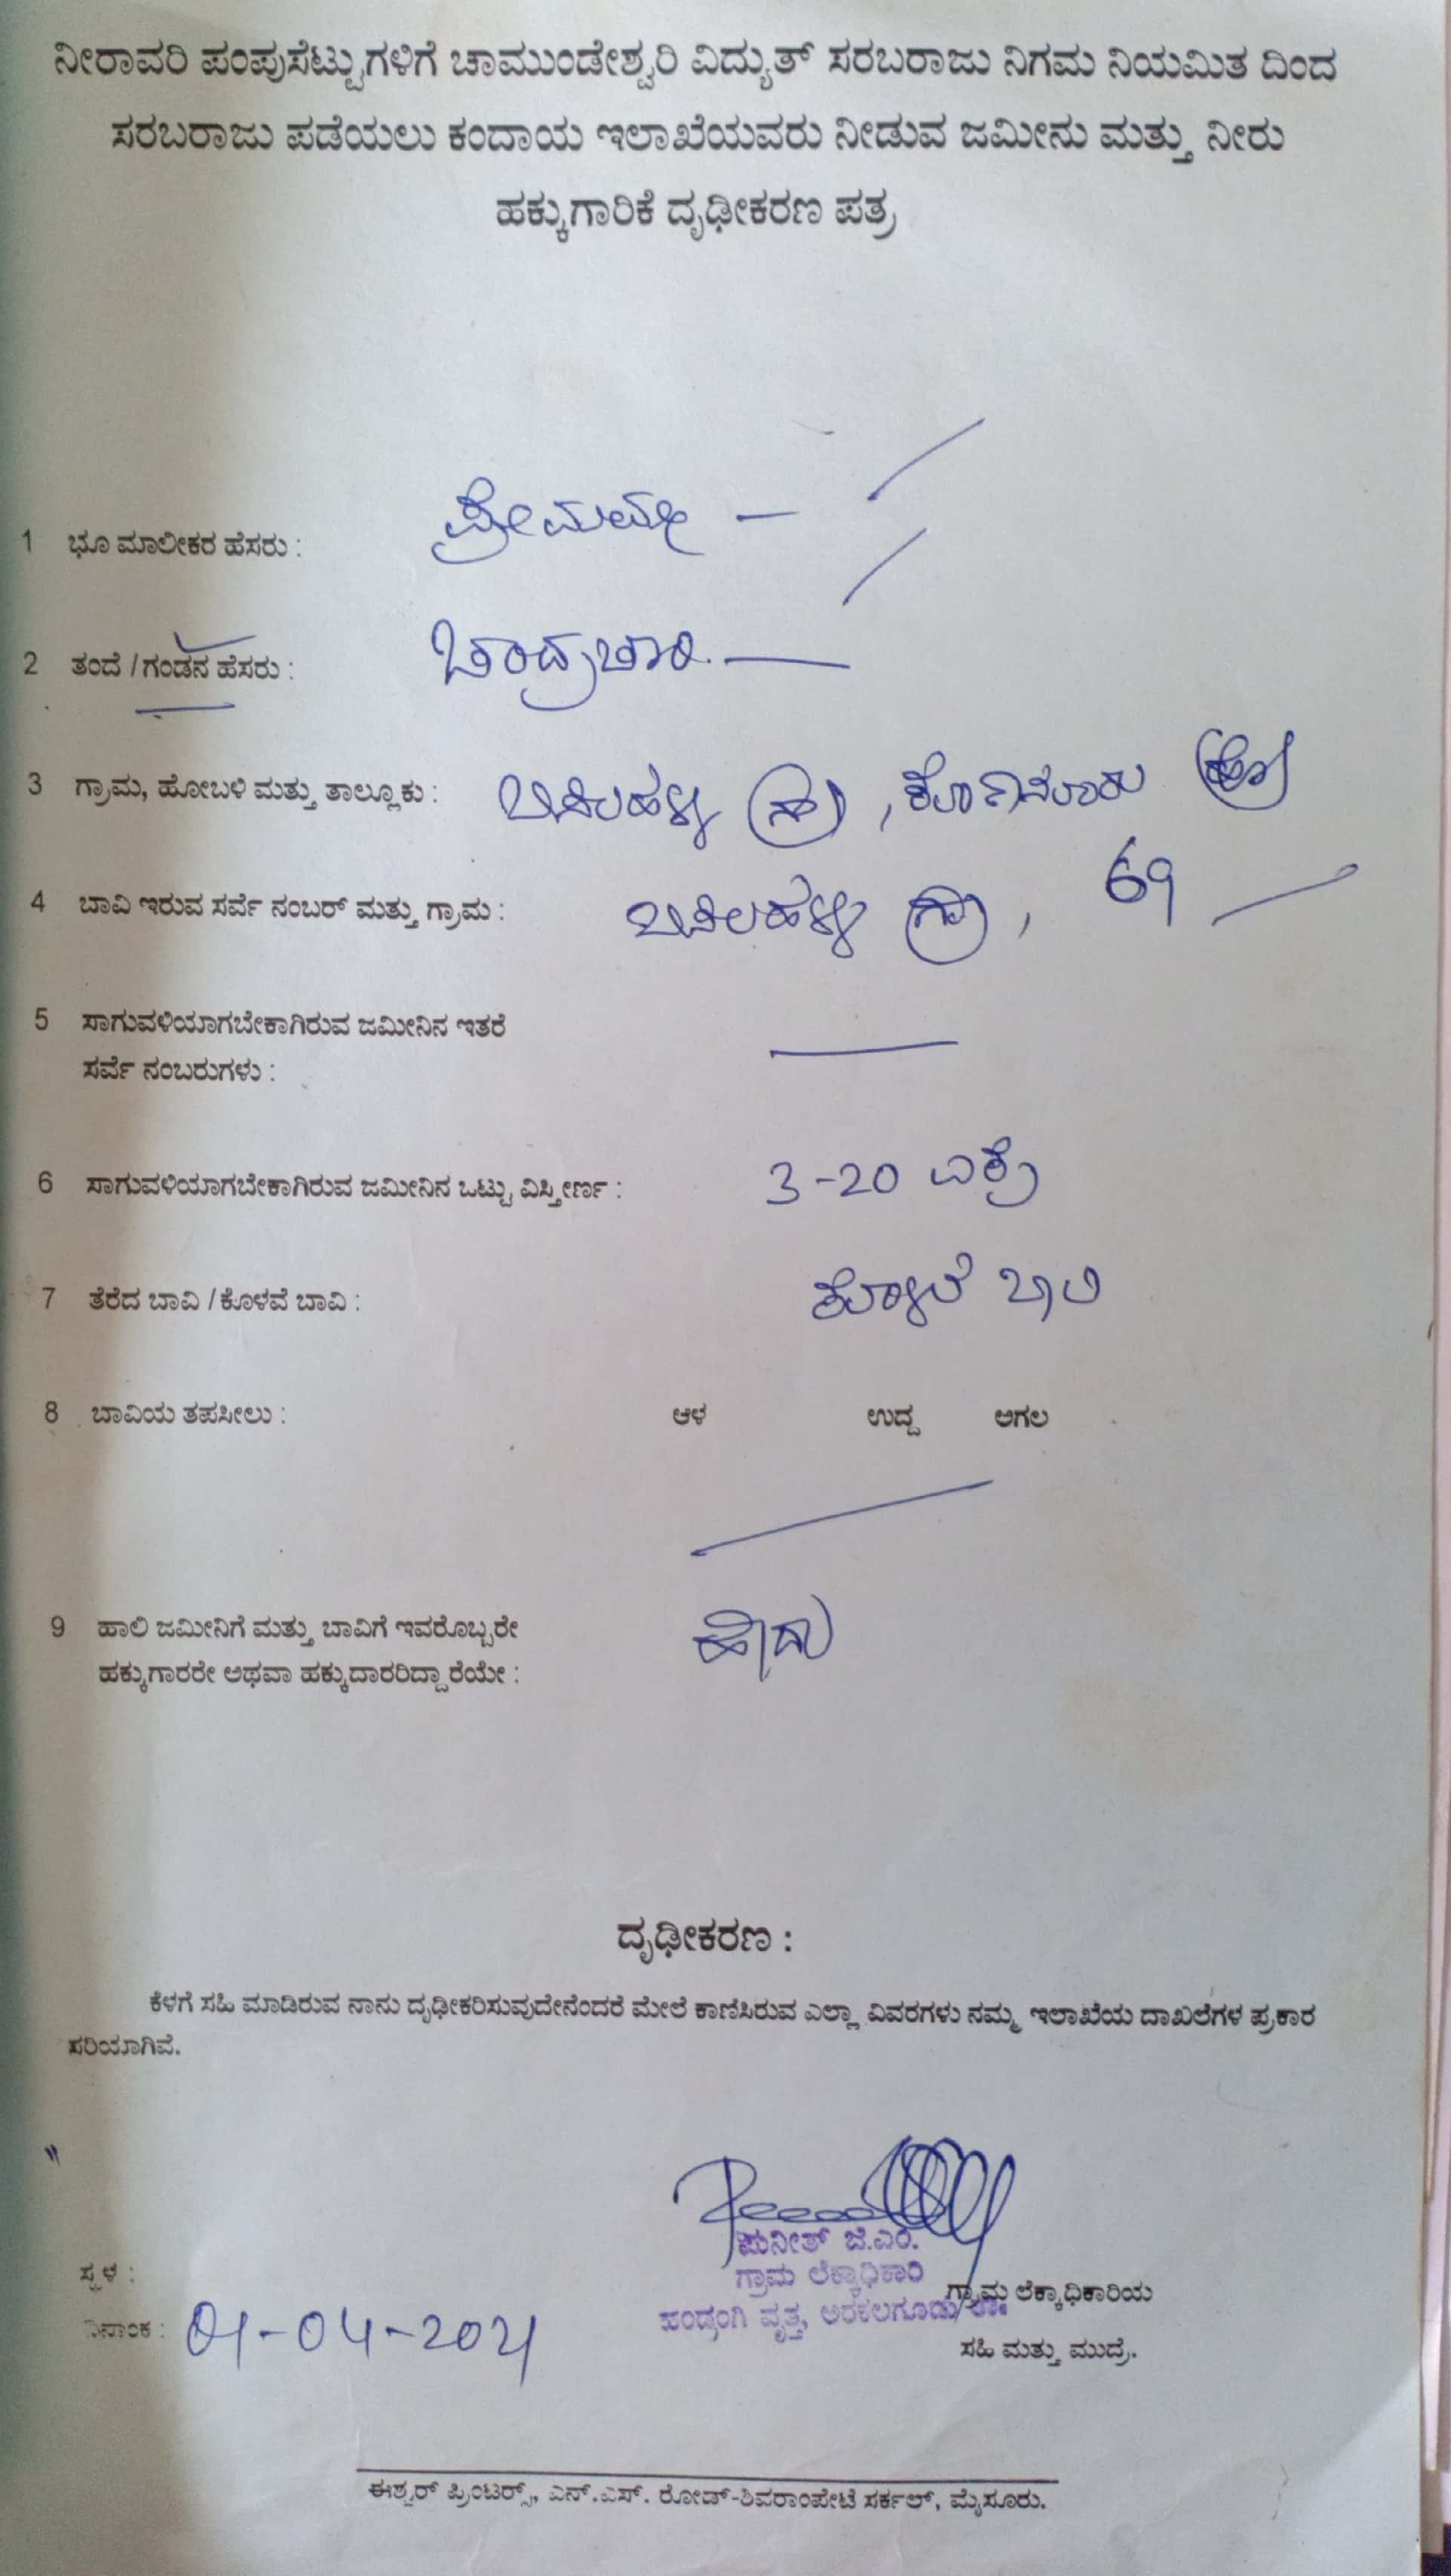 ನೀರಾವರಿ ಪಂಪುಸೆಟ್ಟುಗಳಿಗೆ ಚಾಮುಂಡೇಶ್ವರಿ ವಿದ್ಯುತ್ ಸರಬರಾಜು ನಿಗಮ ನಿಯಮಿತ ದಿಂದ
ಸರಬರಾಜು ಪಡೆಯಲು ಕಂದಾಯ ಇಲಾಖೆಯವರು ನೀಡುವ ಜಮೀನು ಮತ್ತು ನೀರು
ಹಕ್ಕುಗಾರಿಕೆ ದೃಢೀಕರಣ ಪತ್ರ
1 ಭೂ ಮಾಲೀಕರ ಹೆಸರು : ಪ್ರೇಮಮ್ಮ —
2 ತಂದೆ / ಗಂಡನ ಹೆಸರು : ಚಂದ್ರಚಾರಿ. —
3 ಗ್ರಾಮ, ಹೋಬಳಿ ಮತ್ತು ತಾಲ್ಲೂಕು : (ಗ್ರಾ), ಕೊಣನೂರು (ಹೋ)
4 ಬಾವಿ ಇರುವ ಸರ್ವೆ ನಂಬರ್ ಮತ್ತು ಗ್ರಾಮ : (ಗ್ರಾ), 69 —
5 ಸಾಗುವಳಿಯಾಗಬೇಕಾಗಿರುವ ಜಮೀನಿನ ಇತರೆ
ಸರ್ವೆ ನಂಬರುಗಳು : —
6 ಸಾಗುವಳಿಯಾಗಬೇಕಾಗಿರುವ ಜಮೀನಿನ ಒಟ್ಟು ವಿಸ್ತೀರ್ಣ : 3-20 ಎಕ್ರೆ
7 ತೆರೆದ ಬಾವಿ / ಕೊಳವೆ ಬಾವಿ : ಕೊಳವೆ ಬಾವಿ
8 ಬಾವಿಯ ತಪಸೀಲು : ಆಳ ಉದ್ದ ಅಗಲ
9 ಹಾಲಿ ಜಮೀನಿಗೆ ಮತ್ತು ಬಾವಿಗೆ ಇವರೊಬ್ಬರೇ
ಹಕ್ಕುಗಾರರೇ ಅಥವಾ ಹಕ್ಕುದಾರರಿದ್ದಾರೆಯೇ : ಹೌದು
ದೃಢೀಕರಣ :
ಕೆಳಗೆ ಸಹಿ ಮಾಡಿರುವ ನಾನು ದೃಢೀಕರಿಸುವುದೇನೆಂದರೆ ಮೇಲೆ ಕಾಣಿಸಿರುವ ಎಲ್ಲಾ ವಿವರಗಳು ನಮ್ಮ ಇಲಾಖೆಯ ದಾಖಲೆಗಳ ಪ್ರಕಾರ
ಸರಿಯಾಗಿವೆ.
ಪುನೀತ್ ಜೆ.ಎಂ.
ಗ್ರಾಮ ಲೆಕ್ಕಾಧಿಕಾರಿ
ಹಂಡ್ರಂಗಿ ವೃತ್ತ, ಅರಕಲಗೂಡು ತಾ.
ಸ್ಥಳ :
ಗ್ರಾಮ ಲೆಕ್ಕಾಧಿಕಾರಿಯ
ದಿನಾಂಕ : 01-04-2021
ಸಹಿ ಮತ್ತು ಮುದ್ರೆ.
ಈಶ್ವರ್ ಪ್ರಿಂಟರ್ಸ್, ಎನ್.ಎಸ್. ರೋಡ್-ಶಿವರಾಂಪೇಟೆ ಸರ್ಕಲ್, ಮೈಸೂರು.